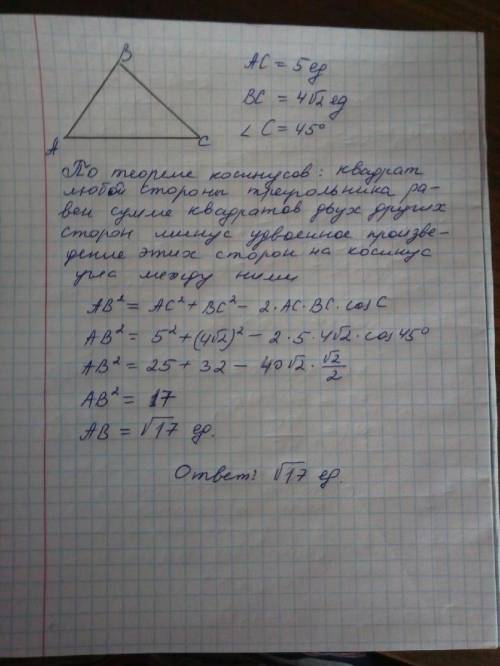 B
A
C
AC = 5 ед
BC = 4√2 ед
∠C = 45°
По теореме косинусов: квадрат
любой стороны треугольника ра-
вен сумме квадратов двух других
сторон минус удвоенное произве-
дение этих сторон на косинус
угла между ними
AB² = AC² + BC² - 2·AC·BC·cos C
AB² = 5² + (4√2)² - 2·5·4√2·cos 45°
AB² = 25 + 32 - 40√2·√2/2
AB² = 17
AB = √17 ед.
Ответ: √17 ед.